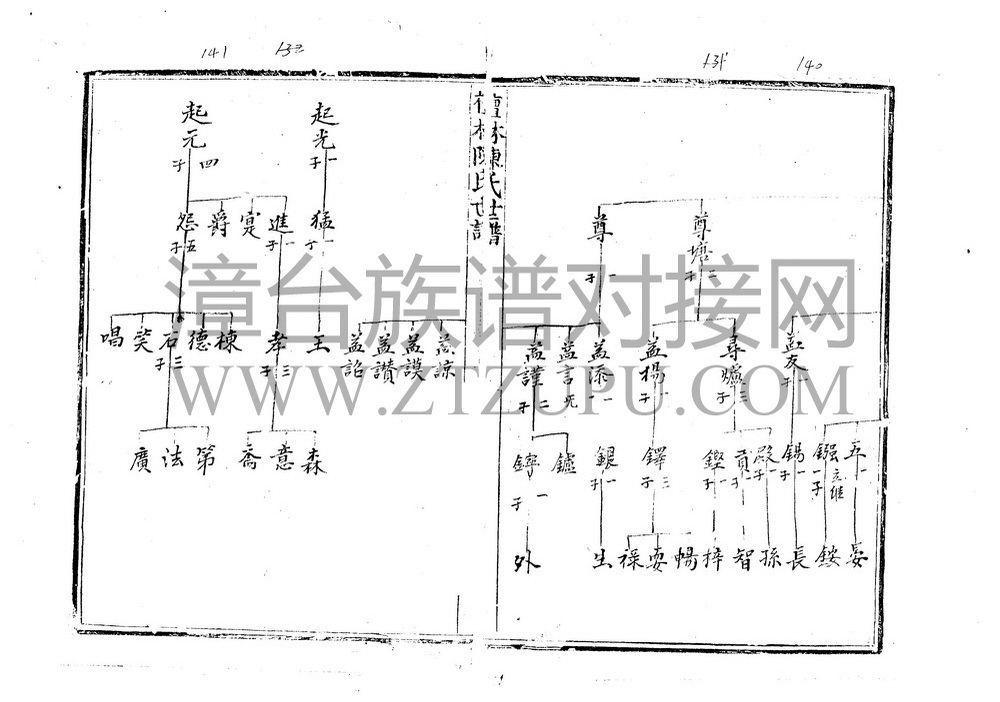 141 132
131 140
檀林陳氏世譜
尊塘 二子
尊 一子
孟友 一子
尋爐 三子
益楊 一子
益添 一
益言 兀
益謹 二子
五 一
錫 一子
殿 一子
貢 一子
鏗 一子
鐸 三子
銀 一子
鑪
鋍 一子
晏
銨
長
孫
智
梓
暢
耍
祿
生
外
起光 一子
起元 四子
猛 一子
進 一子
寔
爵
怨 五子
益諒
益謨
益讚
益詔
王
孝 三子
棟
德
石 三子
笑
唱
森
意
喬
第
法
廣
漳台族谱对接网
WWW.ZTZUPU.COM